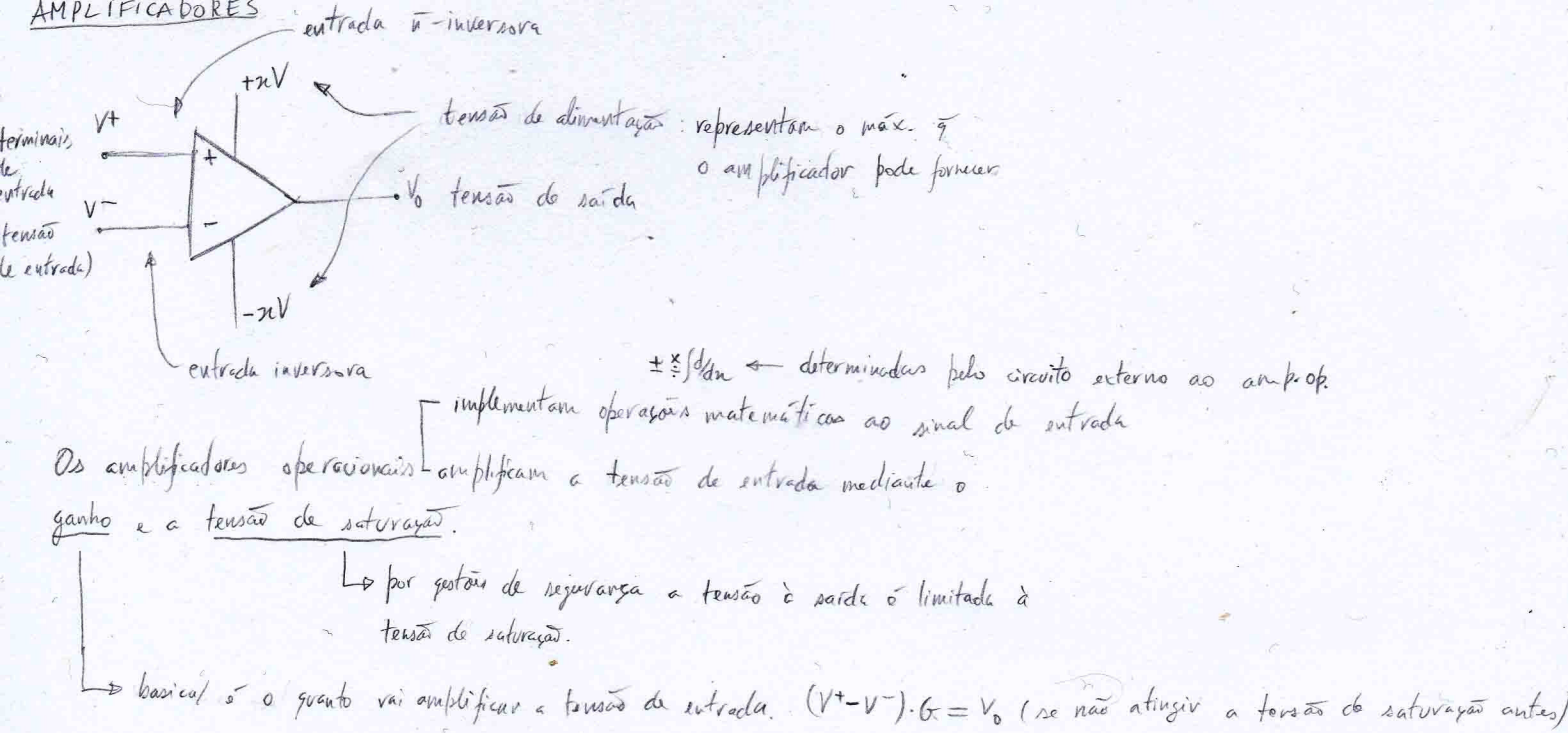 AMPLIFICADORES
entrada ñ-inversora
+xV
terminais
de
entrada
V+
V-
tensão
de entrada)
+
-
tensão de alimentação: representam o máx. q̃
o amplificador pode fornecer
V₀ tensão de saída
-xV
entrada inversora
± × ÷ ∫ d/dx ← determinadas pelo circuito externo ao amp.op.
implementam operações matemáticas ao sinal de entrada
Os amplificadores operacionais amplificam a tensão de entrada mediante o
ganho e a tensão de saturação.
↳ por questões de segurança a tensão à saída é limitada à
tensão de saturação.
↳ basica/ é o quanto vai amplificar a tensão de entrada. (V⁺-V⁻).G = V₀ (se não atingir a tensão de saturação antes)